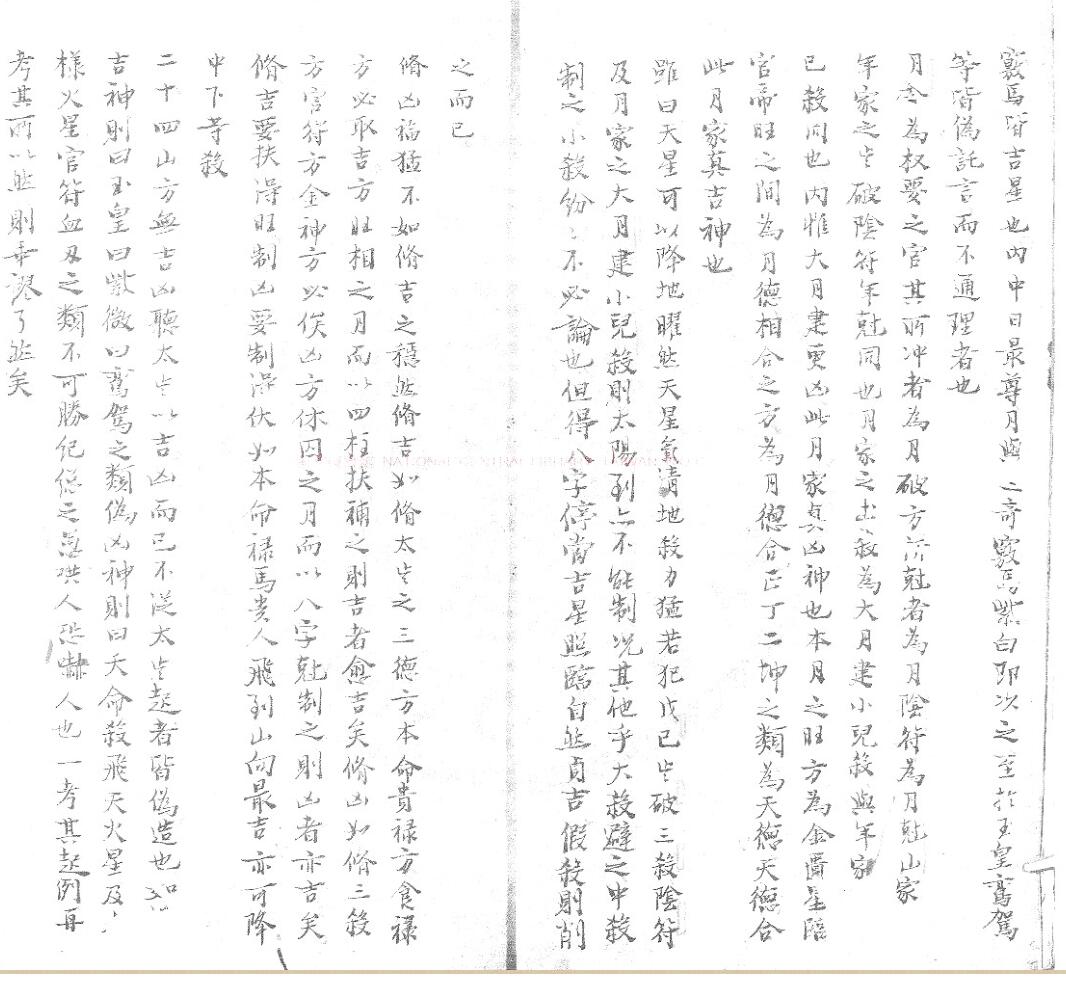 竅馬皆吉星也內中日最尊月與三奇竅馬紫白即次之至於玉皇鸞駕
等皆偽託言而不通理者也
月令為权要之官其所冲者為月破方所尅者為月陰符為月尅山家
年家之歲破陰符年尅同也月家之土殺為大月建小兒殺與年家
己殺同也內惟大月建更凶此月家真凶神也本月之旺方為金匱星臨
官帝旺之間為月德相合之方為月德合正丁二坤之類為天德天德合
此月家真吉神也
雖曰天星可以降地曜然天星氣清地殺力猛若犯戊己歲破三殺陰符
及月家之大月建小兒殺則太陽到亦不能制况其他乎大殺避之中殺
制之小殺紛々不必論也但得八字停當吉星照臨自然貞吉假殺則削
之而已
NATIONAL CENTRAL LIBRARY TAIWAN
脩凶福猛不如脩吉之穩然脩吉如脩太歲之三德方本命貴祿方食祿
方必取吉方旺相之月而以四柱扶補之則吉者愈吉矣脩凶如脩三殺
方官符方金神方必俟凶方休囚之月而以八字尅制之則凶者亦吉矣
脩吉要扶得旺制凶要制得伏如本命祿馬貴人飛到山向最吉亦可降
中下等殺
二十四山方無吉凶聽太歲以吉凶而已不從太歲起者皆偽造也如
吉神則曰玉皇曰紫微曰鸞駕之類偽凶神則曰天命殺飛天火星及
樣火星官符血刃之類不可勝紀總之惡哄人恐嚇人也一考其起例再
考其所以然則乖謬了然矣